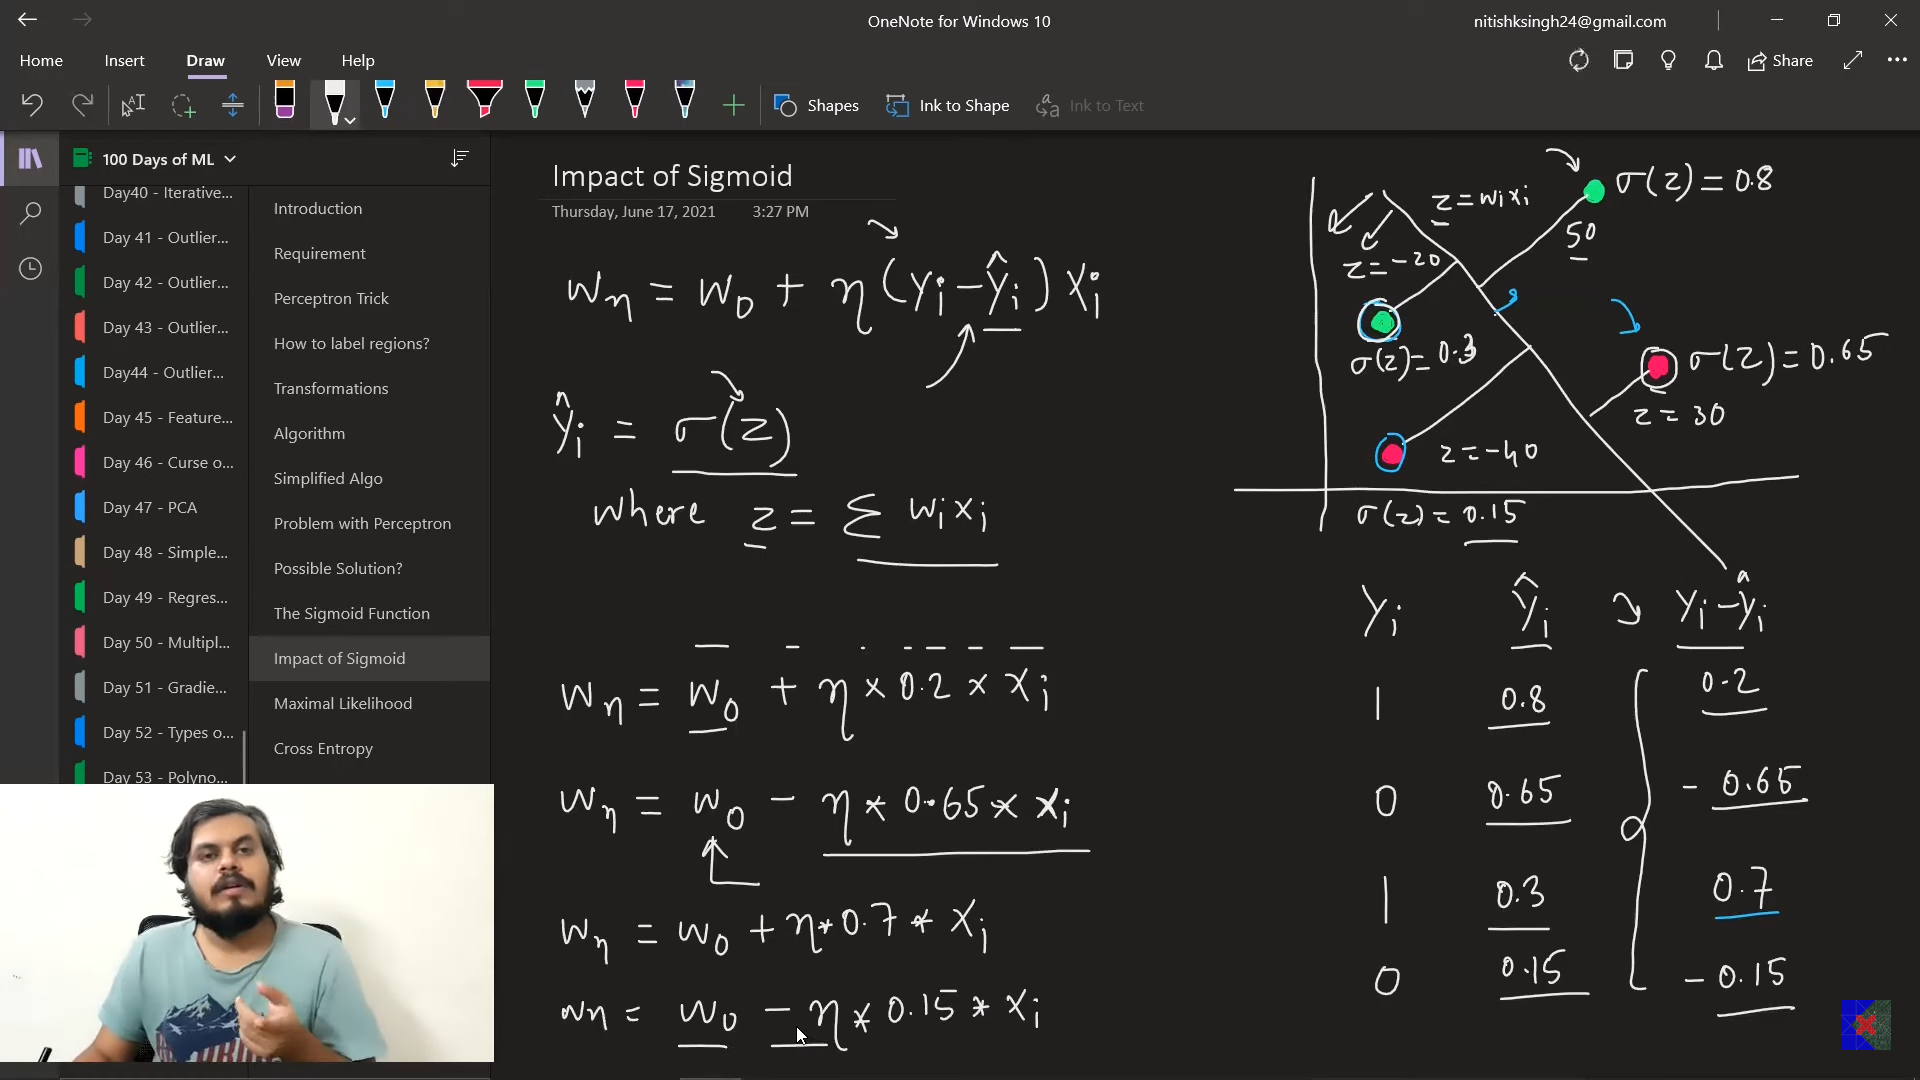 OneNote for Windows 10
nitishksingh24@gmail.com
Home Insert Draw View Help
Share
Shapes Ink to Shape Ink to Text
100 Days of ML
Day40 - Iterative...
Day 41 - Outlier...
Day 42 - Outlier...
Day 43 - Outlier...
Day44 - Outlier...
Day 45 - Feature...
Day 46 - Curse o...
Day 47 - PCA
Day 48 - Simple...
Day 49 - Regres...
Day 50 - Multipl...
Day 51 - Gradie...
Day 52 - Types o...
Day 53 - Polyno...
Introduction
Requirement
Perceptron Trick
How to label regions?
Transformations
Algorithm
Simplified Algo
Problem with Perceptron
Possible Solution?
The Sigmoid Function
Impact of Sigmoid
Maximal Likelihood
Cross Entropy
Impact of Sigmoid
Thursday, June 17, 2021 3:27 PM
Wη = W0 + η(Yi - Ŷi) Xi
Ŷi = σ(z)
where z = Σ Wi Xi
Wη = W0 + η × 0.2 × Xi
Wη = W0 - η * 0.65 * Xi
Wη = W0 + η * 0.7 * Xi
Wη = W0 - η * 0.15 * Xi
z = Wi Xi
σ(z) = 0.8
50
z = -20
σ(z) = 0.3
σ(z) = 0.65
z = 30
z = -40
σ(z) = 0.15
Yi Ŷi Yi - Ŷi
1 0.8 0.2
0 0.65 - 0.65
1 0.3 0.7
0 0.15 - 0.15